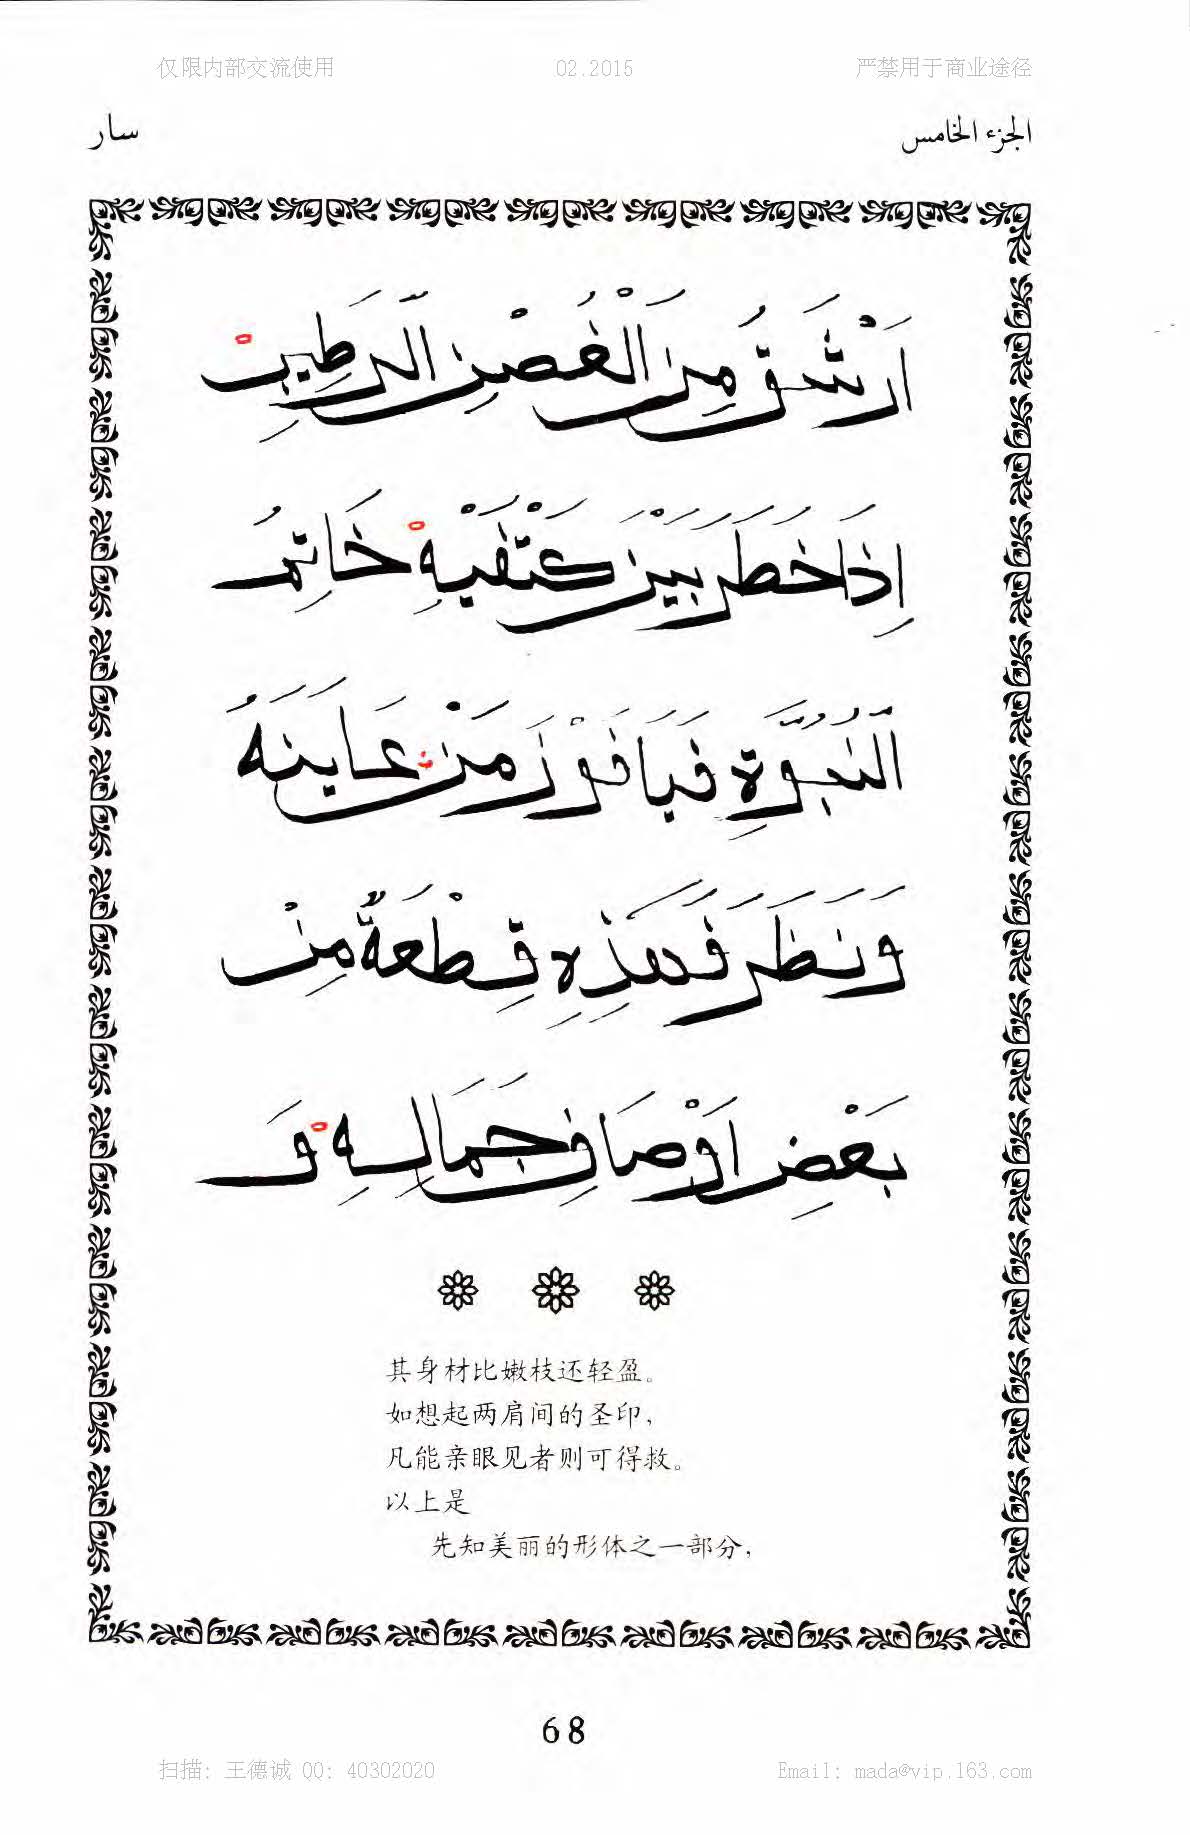 仅限内部交流使用 02.2015 严禁用于商业途径
الجزء الخامس سار
اَرْشَقُ مِنَ الْغُصْنِ الرَّطِيبْ
اِذَا خَطَرَ بَيْنَ كَتْفَيْهِ خَاتَمُ
النُّبُوَّةِ فَيَا فَوْزَ مَنْ عَايَنَهُ
وَنَظَرَ فَهَذِهِ قِطْعَةٌ مِنْ
بَعْضِ اَوْصَافِ جَمَالِهِ وَ
其身材比嫩枝还轻盈。
如想起两肩间的圣印，
凡能亲眼见者则可得救。
以上是
先知美丽的形体之一部分，
68
扫描：王德诚 QQ：40302020 Email：mada@vip.163.com